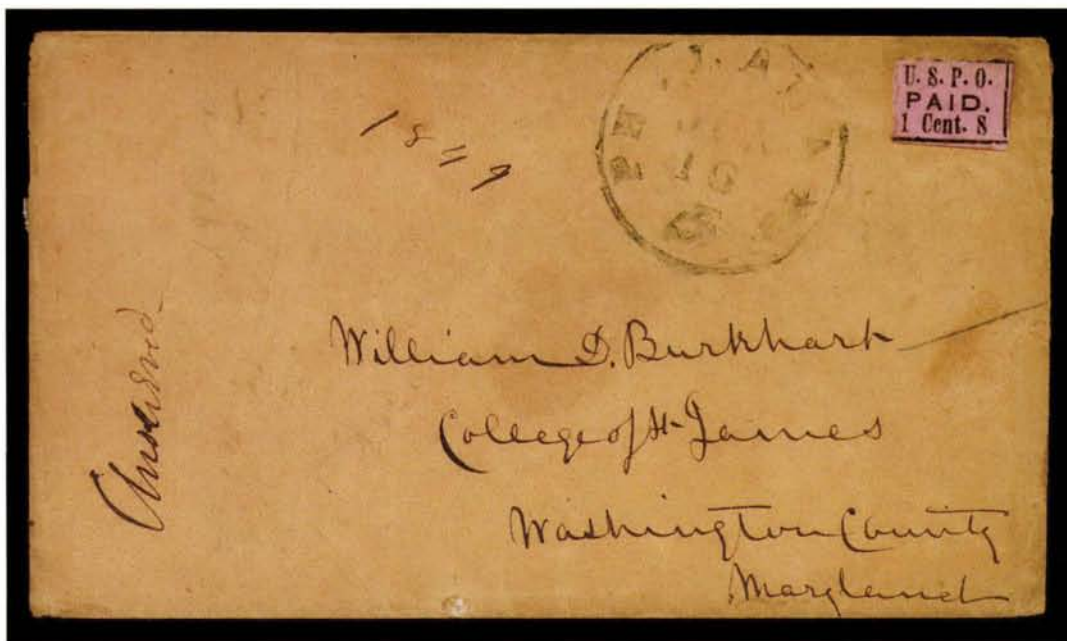 U. S. P. O.
PAID.
1 Cent. 8
18
Answered
William D. Burkhart
College of St James
Washington County
Maryland